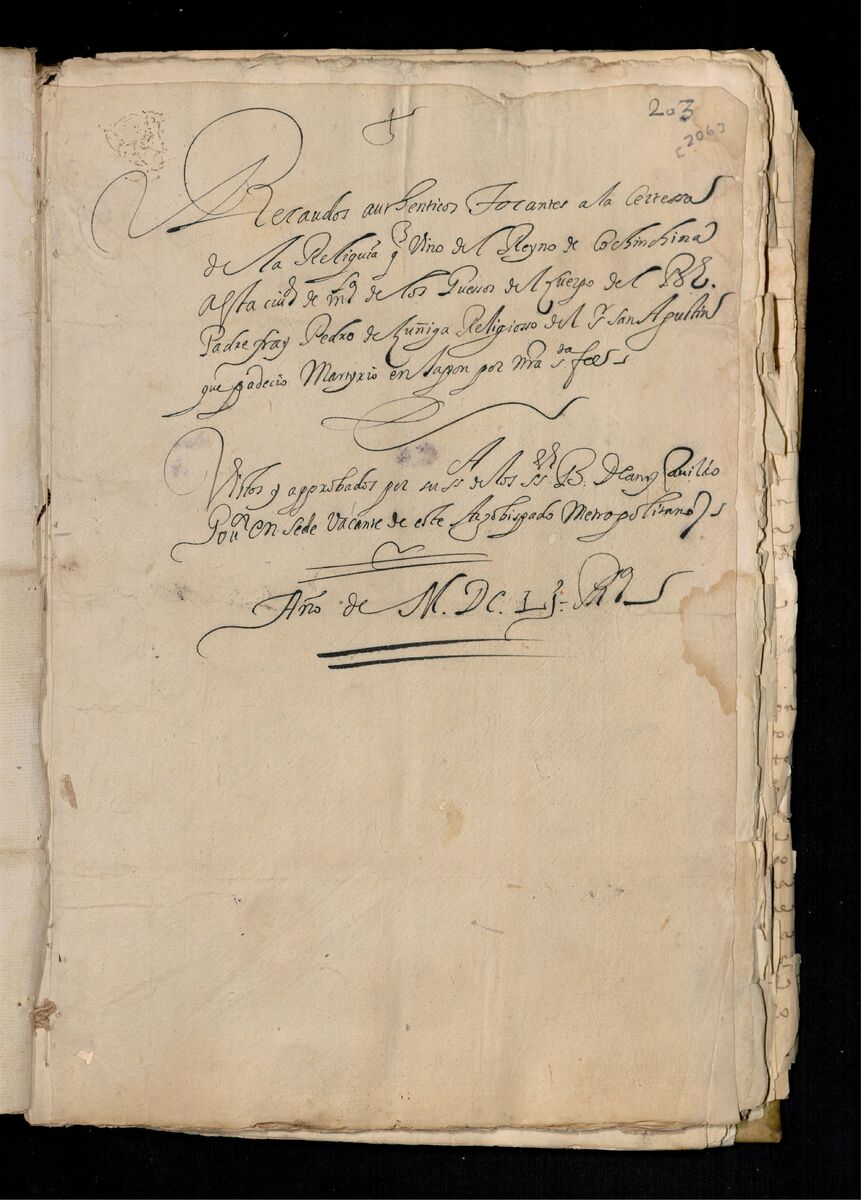 203
[206]
Recaudos authenticos Tocantes a la Certessa
de la Reliquia q Vino del Reyno de Cochinchina
a esta ciud de Mla de los Guessos del Cuerpo del
Padre fray Pedro de Zuñiga Religiosso del San Agustin
que padecio Martyrio en Japon por nra sta fee
Vistos y approbados por su sa de los ss Dean y Cavildo
Gour en Sede Vacante de este Arzobispado Metropolitano
Año de M. DC. Lj.